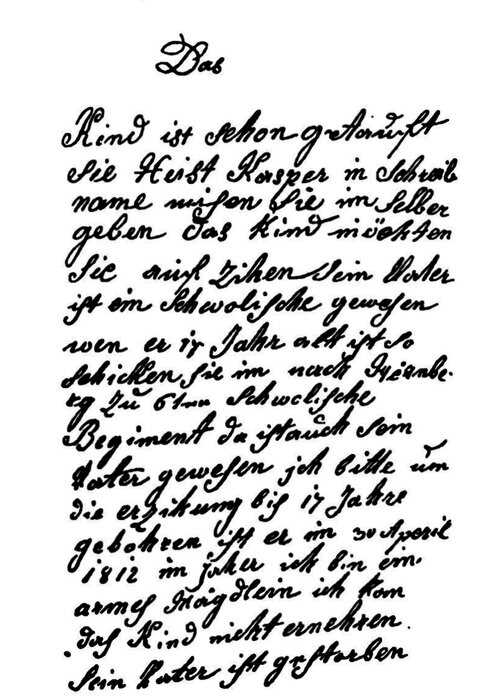 Das
Kind ist schon getauft
Sie Heist Kasper in Schreib
name misen Sie im Selber
geben das Kind möchten
Sie auf zihen Sein Vater
ist ein Schwolische gewesen
wen er 17 Jahr alt ist so
schicken Sie im nach Nirnbe-
rg zu 6ten Schwolische
Begiment da ist auch sein
Vater gewesen ich bitte um
die erzikung bis 17 Jahre
gebohren ist er im 30 April
1812 im jaher ich bin ein
armes Mägdlein ich kan
das Kind nicht ernehren.
Sein Vater ist gestorben